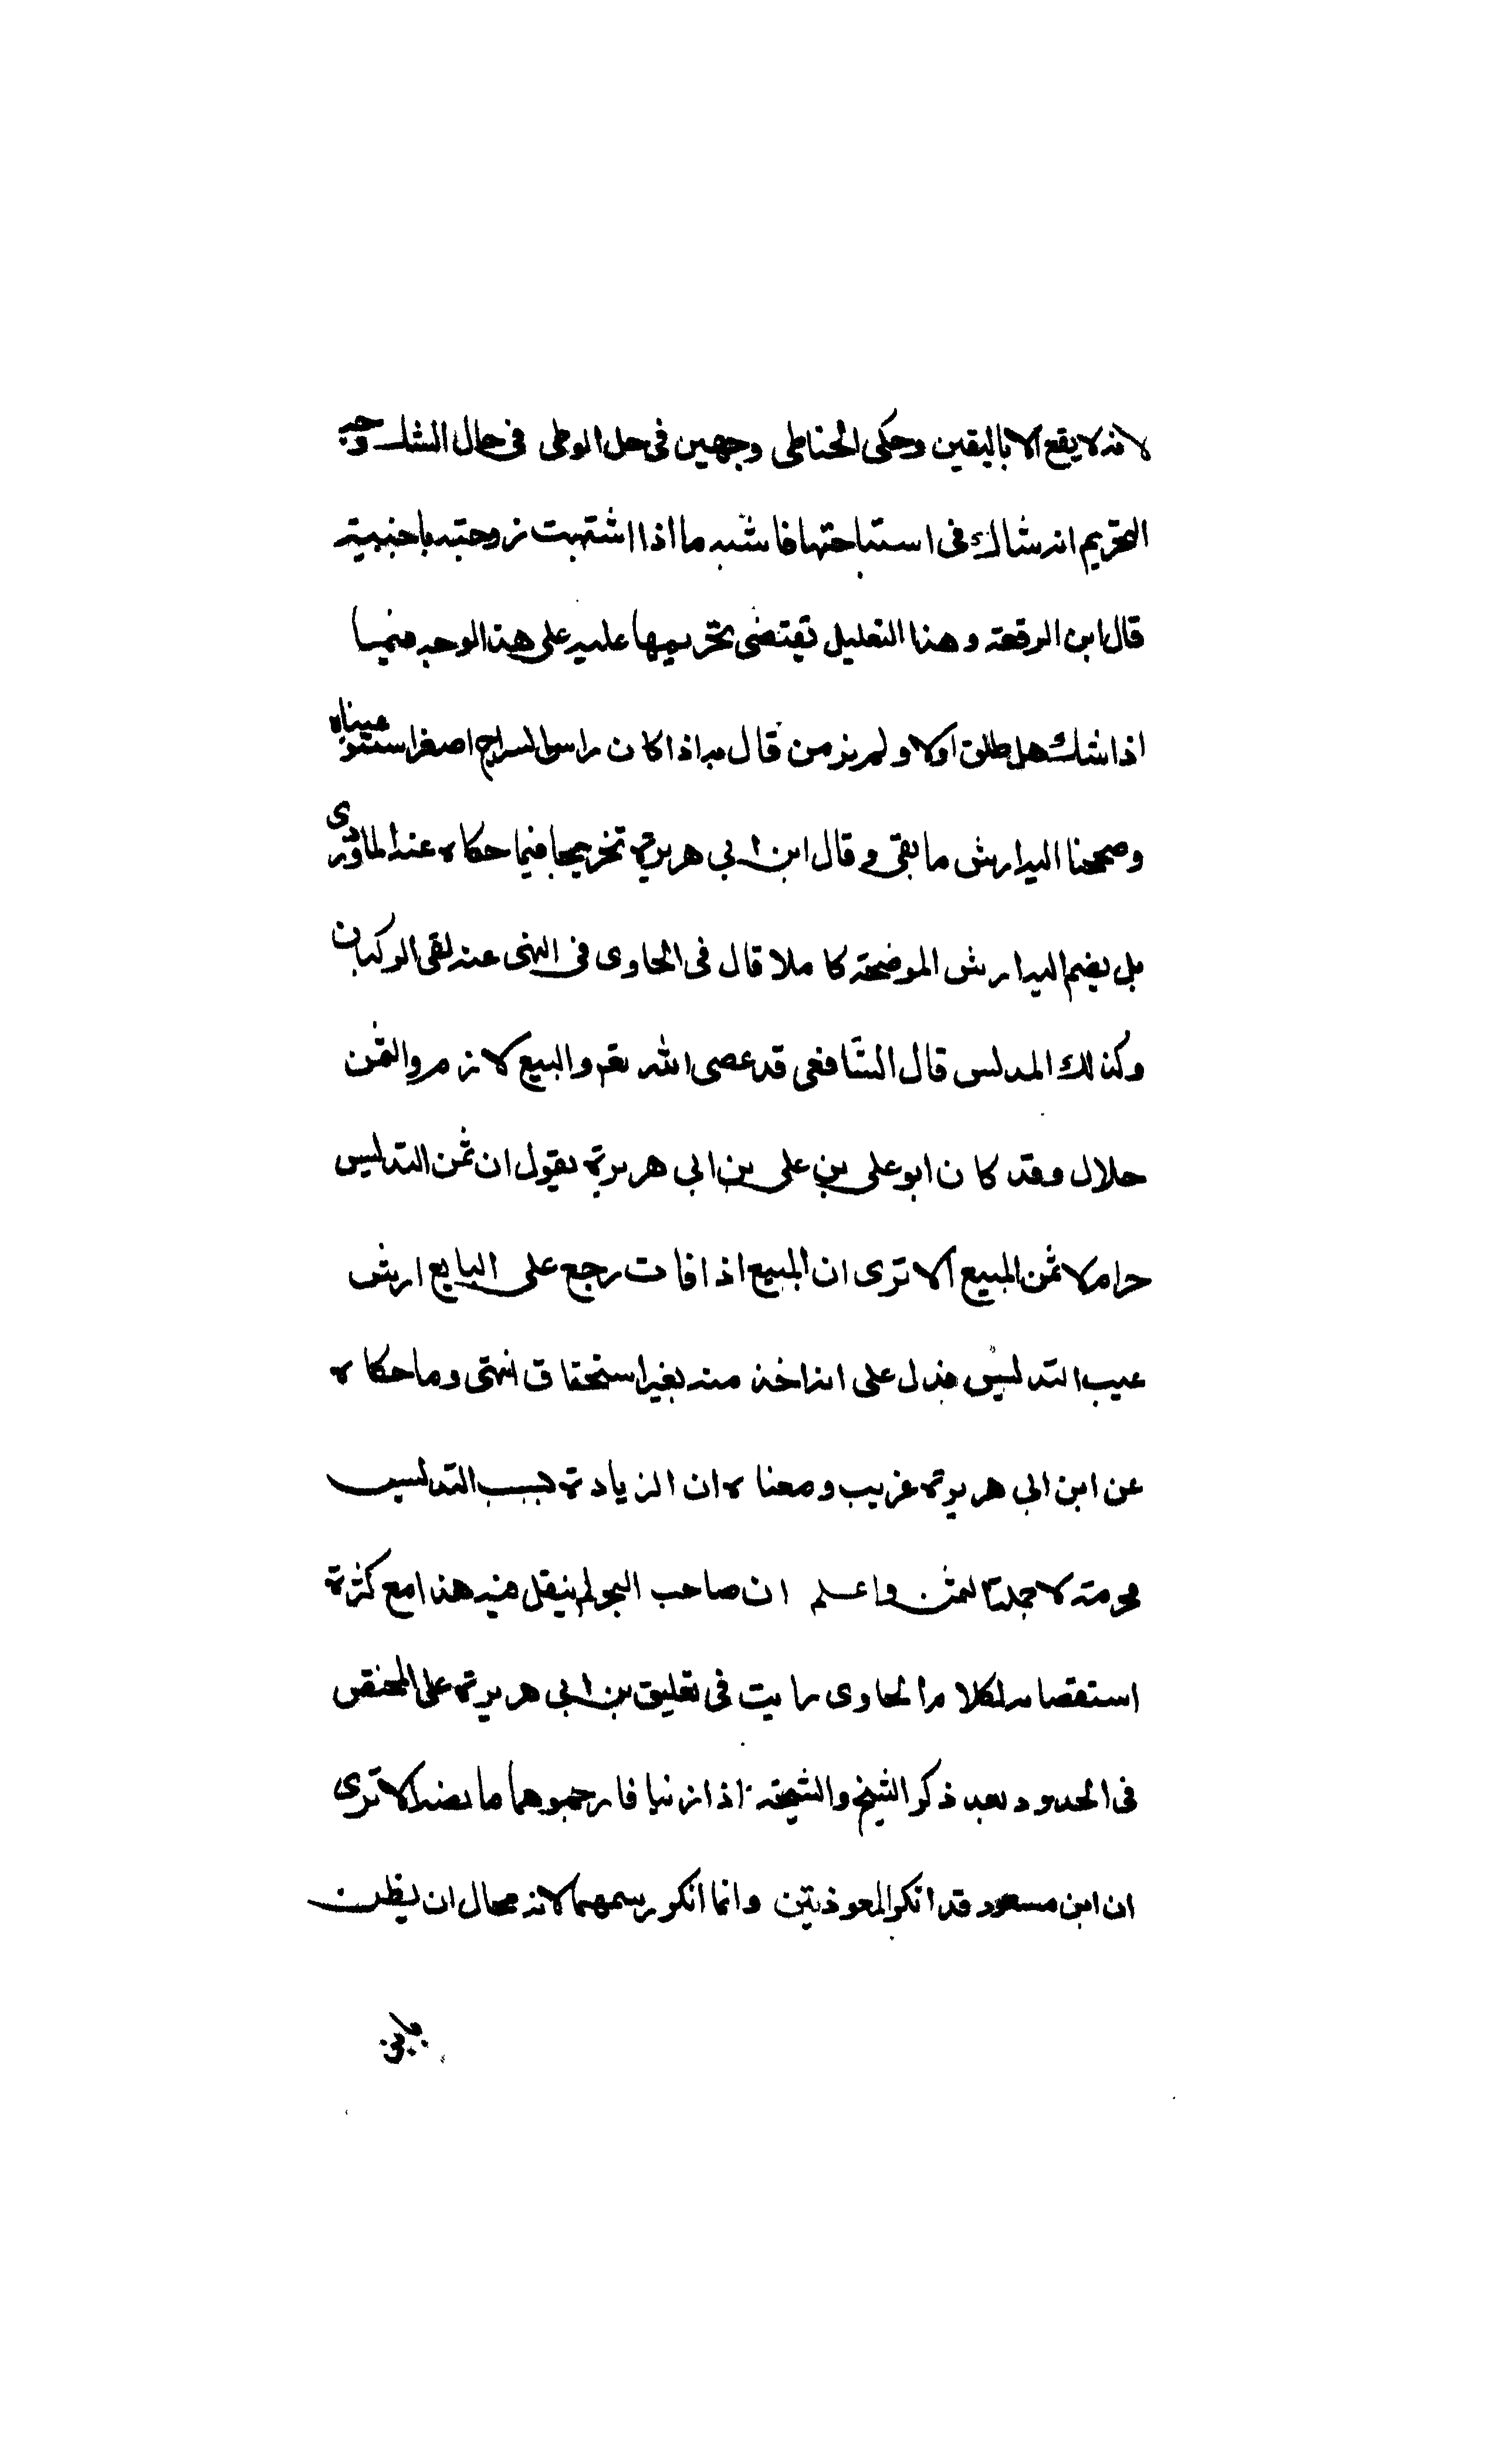 لانه لا يقع الا باليقين وحكى الحناطى وجهين فى حل الوطى فى حال الشك وجه
التحريم انه شاك فى استباحتها فاشبه ما اذا اشتبهت زوجته باجنبية
قال ابن الرفعة وهذا التعليل يقتضى تحريمها عليه على هذا الوجه فيما
اذا شك هل طلق اولا ولم نر من قال به اذا كان راس الشاج اصغر استوعبناه
وضممنا اليه ارش ما بقى وقال ابن ابى هريرة تخريجا فيما حكاه عنه الماوردى
بل يضم اليه ارش الموضحة كاملا قال فى الحاوى فى النهى عن تلقى الركبان
وكذلك المدلس قال الشافعى قد عصى الله تعم والبيع لازم والثمن
حلال وقد كان ابو على بن على بن ابى هريرة يقول ان ثمن التدليس
حرام لا ثمن المبيع الا ترى ان المبيع اذا فات رجع على البايع ارش
عيب التدليس فدل على انه اخذ منه بغير استحقاق انتهى وما حكاه
عن ابن ابى هريرة غريب ومعناه ان الزيادة بسبب التدليس
محرمة لا جملة الثمن واعلم ان صاحب البحر لم ينقل فيه هذا مع كثرة
استقصايه لكلام الحاوى رايت فى تعليق بن ابى هريرة على المختصر
فى الحدود بعد ذكر الشيخ والشيخة اذا زنيا فارجموهما ما نصه الا ترى
ان ابن مسعود قد انكر المعوذتين وانما انكر رسمهما لانه محال ان يظن